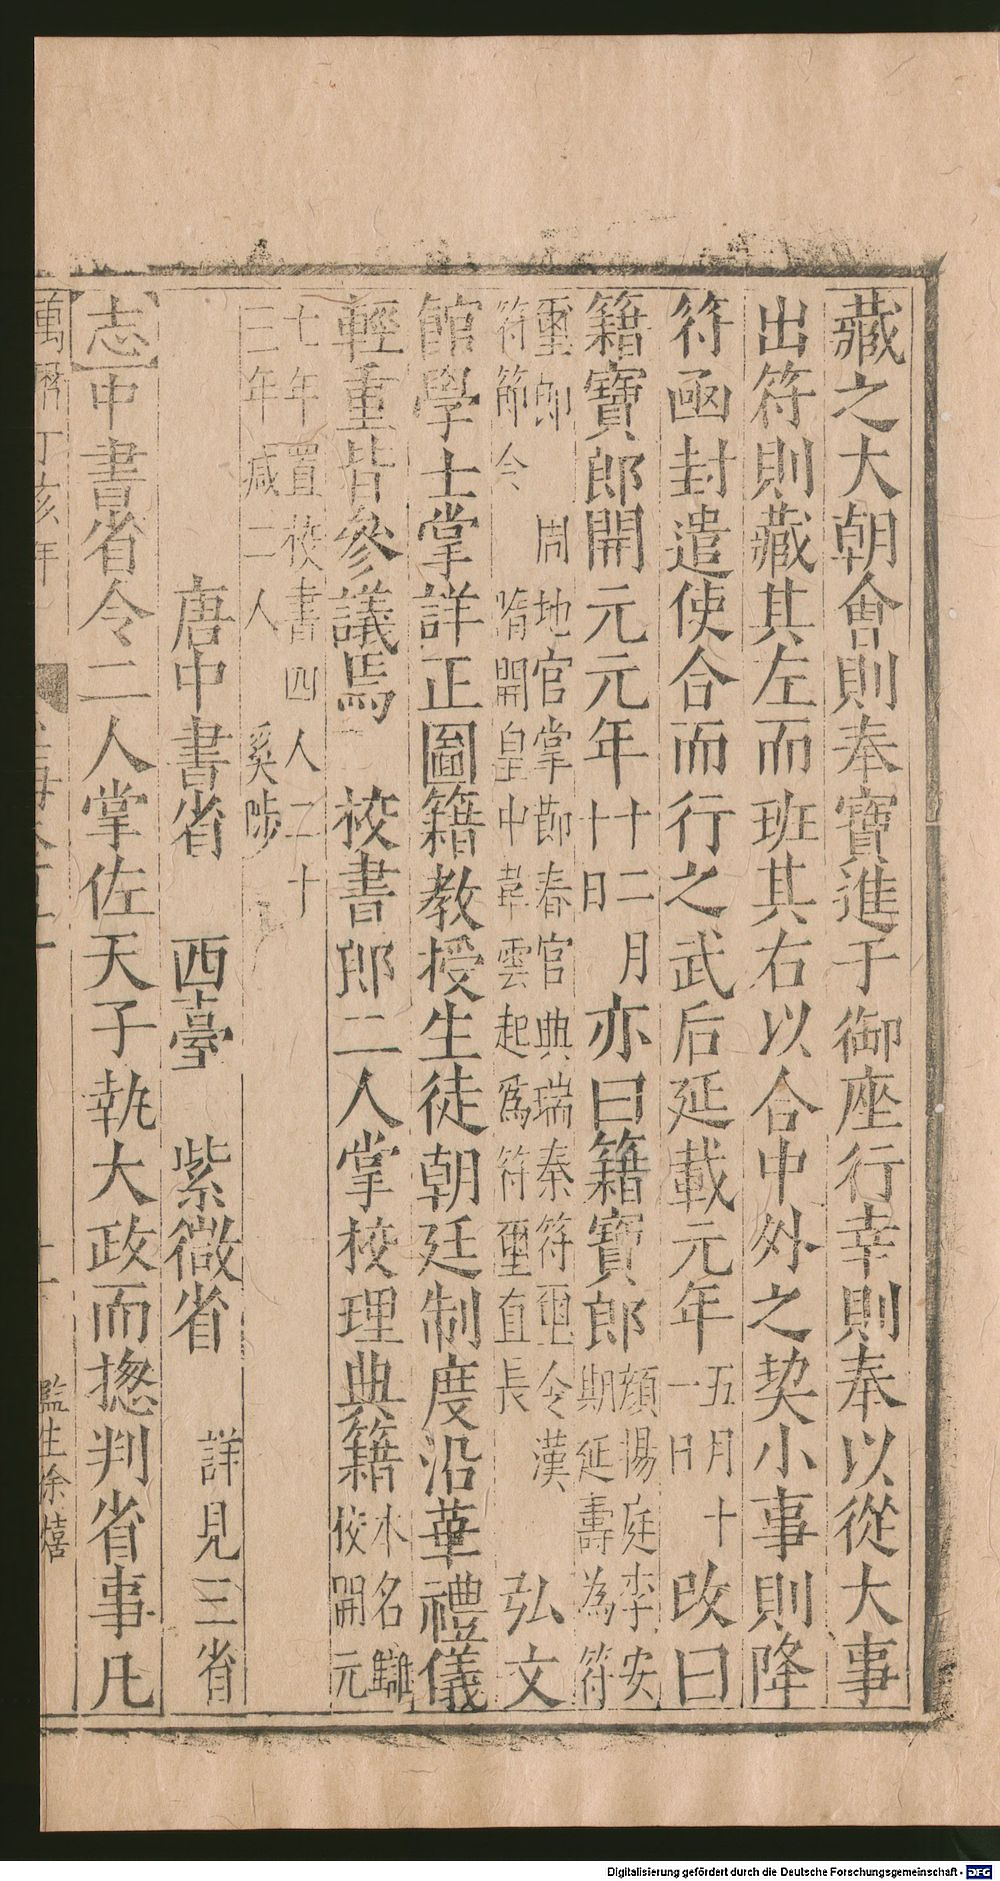 藏之大朝會則奉寶進于御座行幸則奉以從大事
出符則藏其左而班其右以合中外之契小事則降
符函封遣使合而行之武后延載元年五月十一日改曰
符寶郎開元元年十二月十日亦曰符寶郎頻陽庭李安期延壽為符
璽郎符節令周地官掌節春官典瑞秦符璽令漢隋開皇中韋雲起爲符璽直長弘文
館學士掌詳正圖籍教授生徒朝廷制度沿革禮儀
輕重皆參議焉校書郎二人掌校理典籍本名讎校開元
七年置校書四人二十三年减二人奚陟
唐中書省 西臺 紫微省 詳見三省
志中書省令二人掌佐天子執大政而揔判省事凡
萬曆丁亥年
監生徐熺
Digitalisierung gefördert durch die Deutsche Forschungsgemeinschaft - DFG